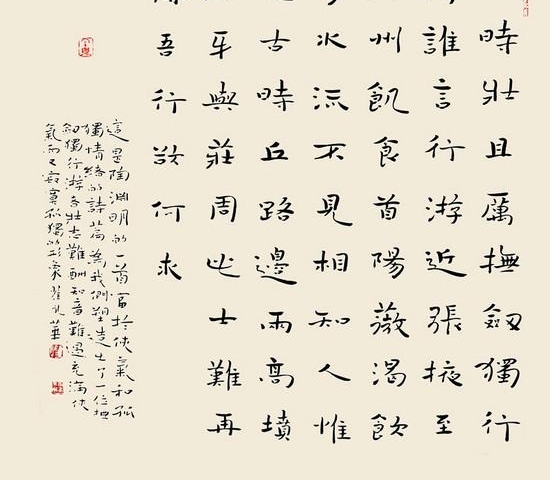 時壯且厲撫劍獨行
誰言行游近張掖至
州飢食首陽薇渴飲
水流不見相知人惟
古時丘路邊兩高墳
牙與莊周此士難再
吾行欲何求
這是陶淵明的一首富於俠氣和孤
獨情緒的詩篇為我們塑造出了一位
劍獨行游者壯志難酬知音難遇充滿俠
氣而又寂寞孤獨的形象